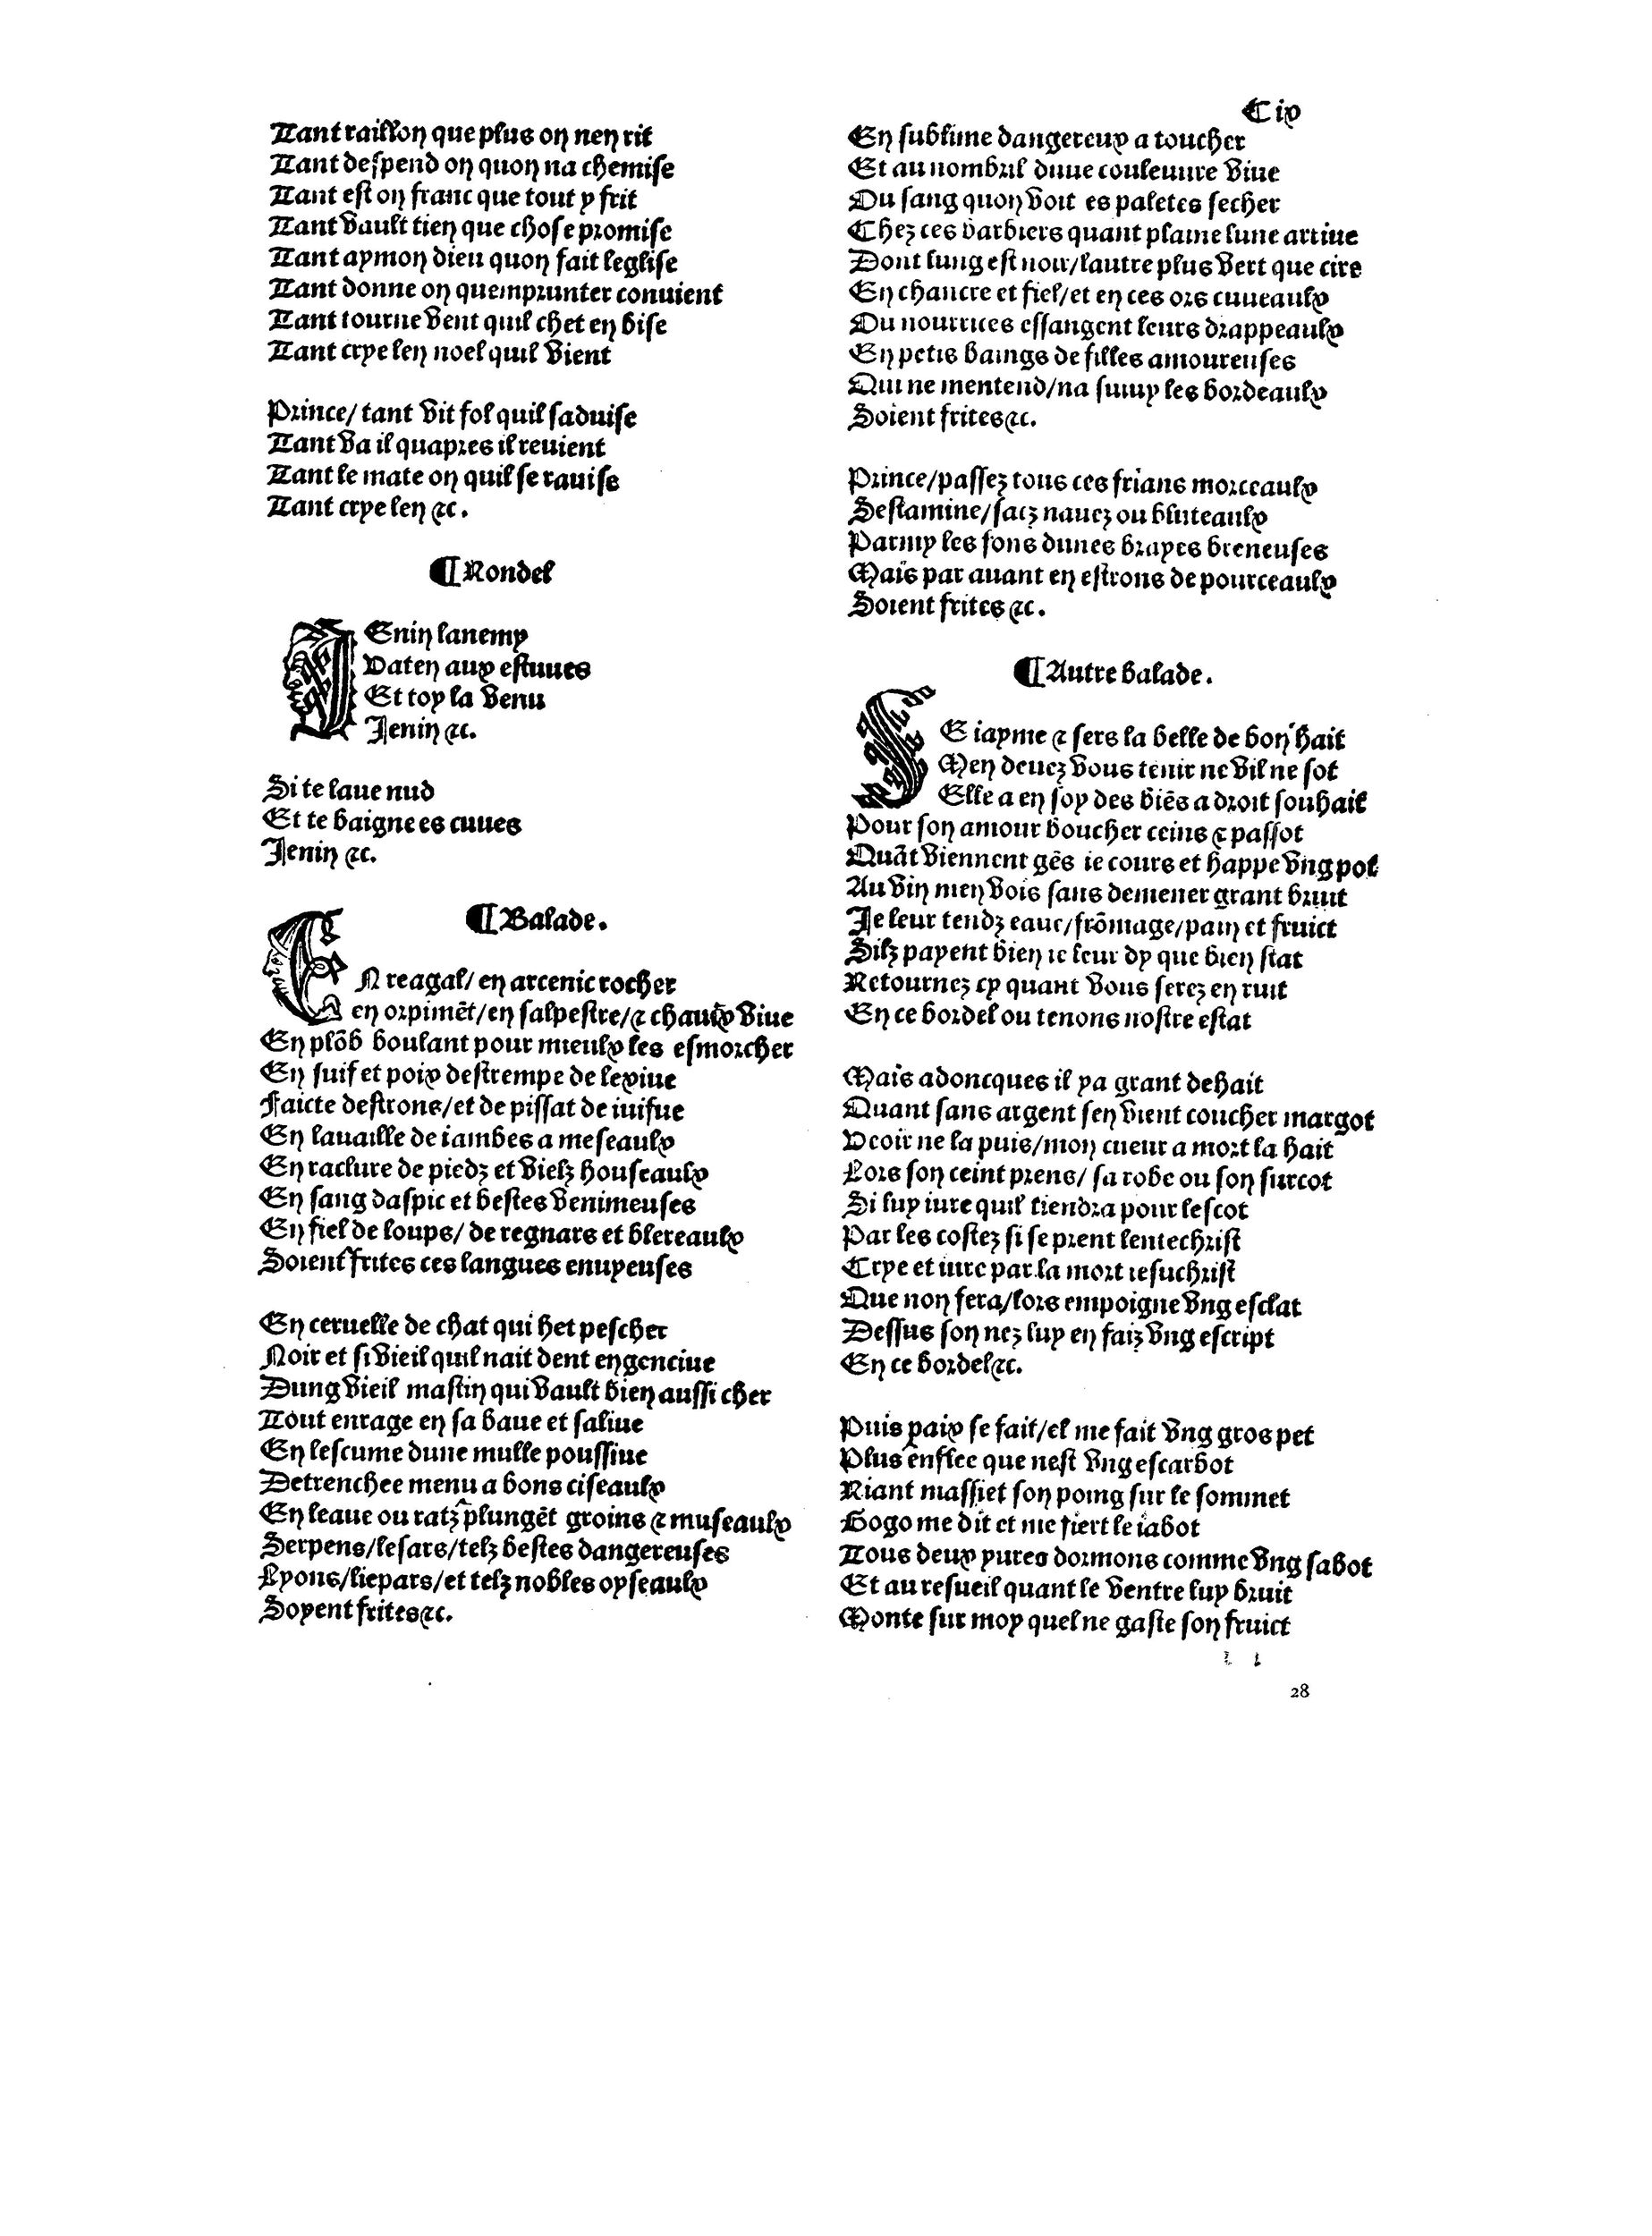 Tant raillon que plus on nen rit
Tant despend on quon na chemise
Tant est on franc que tout y frit
Tant vault tien que chose promise
Tant aymon dieu quon fait leglise
Tant donne on quemprunter conuient
Tant tourne vent quil chet en bise
Tant crye len noel quil vient
Prince/ tant vit fol quil saduise
Tant va il quapres il reuient
Tant le mate on quil se rauise
Tant crye len ⁊c.
¶Rondel
IEnin lanemy
Vaten aux estuues
Et toy la venu
Jenin ⁊c.
Si te laue nud
Et te baigne es cuues
Jenin ⁊c.
¶Balade.
EN reagal/ en arcenic rocher
en orpimẽt/en salpestre/⁊ chaulx viue
En plõb boulant pour mieulx les esmorcher
En suif et poix destrempe de lexiue
Faicte destrons/et de pissat de iuifue
En lauaille de iambes a meseaulx
En raclure de piedz et vielz houseaulx
En sang daspic et bestes venimeuses
En fiel de loups/ de regnars et blereaulx
Soient frites ces langues enuyeuses
En ceruelle de chat qui het pescher
Noir et si vieil quil nait dent en genciue
Dung vieil mastin qui vault bien aussi cher
Tout enrage en sa baue et saliue
En lescume dune mulle poussiue
Detrenchee menu a bons ciseaulx
En leaue ou ratz plungẽt groins ⁊ museaulx
Serpens/lesars/telz bestes dangereuses
Lyons/liepars/et telz nobles oyseaulx
Soyent frites⁊c.
C ix
En sublime dangereux a toucher
Et au nombril dune couleuure viue
Du sang quon voit es paletes secher
Chez ces barbiers quant plaine lune arriue
Dont lung est noir/lautre plus vert que cire
En chancre et fiel/et en ces ors cuueaulx
Ou nourrices essangent leurs drappeaulx
En petis baings de filles amoureuses
Qui ne mentend/na suiuy les bordeaulx
Soient frites⁊c.
Prince/passez tous ces frians morceaulx
Sestamine/sacz nauez ou bluteaulx
Parmy les fons dunes brayes breneuses
Mais par auant en estrons de pourceaulx
Soient frites ⁊c.
¶Autre balade.
SE iayme ⁊ sers la belle de bon hait
Men deuez vous tenir ne vil ne sot
Elle a en soy des biẽs a droit souhait
Pour son amour boucher ceins ⁊ passot
Quãt viennent gẽs ie cours et happe vng pot
Au vin men vois sans demener grant bruit
Je leur tendz eaue/frõmage/pain et fruict
Silz payent bien ie leur dy que bien stat
Retournez cy quant vous serez en ruit
En ce bordel ou tenons nostre estat
Mais adoncques il ya grant dehait
Quant sans argent sen vient coucher margot
Veoir ne la puis/mon cueur a mort la hait
Lors son ceint prens/ sa robe ou son surcot
Si luy iure quil tiendra pour lescot
Par les costez si se prent lentechrist
Crye et iure par la mort iesuchrist
Que non fera/lors empoigne vng esclat
Dessus son nez luy en faiz vng escript
En ce bordel⁊c.
Puis paix se fait/el me fait vng gros pet
Plus enflee que nest vng escarbot
Riant massiet son poing sur le sommet
Gogo me dit et me fiert le iabot
Tous deux yures dormons comme vng sabot
Et au resueil quant le ventre luy bruit
Monte sur moy quel ne gaste son fruict
28